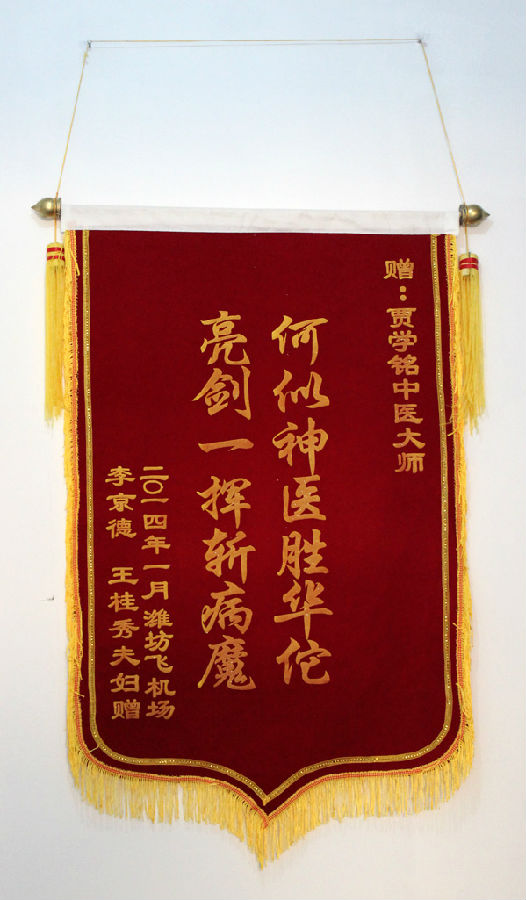 赠：贾学铭中医大师
何似神医胜华佗
亮剑一挥斩病魔
二〇一四年一月潍坊飞机场
李京德 王桂秀夫妇赠